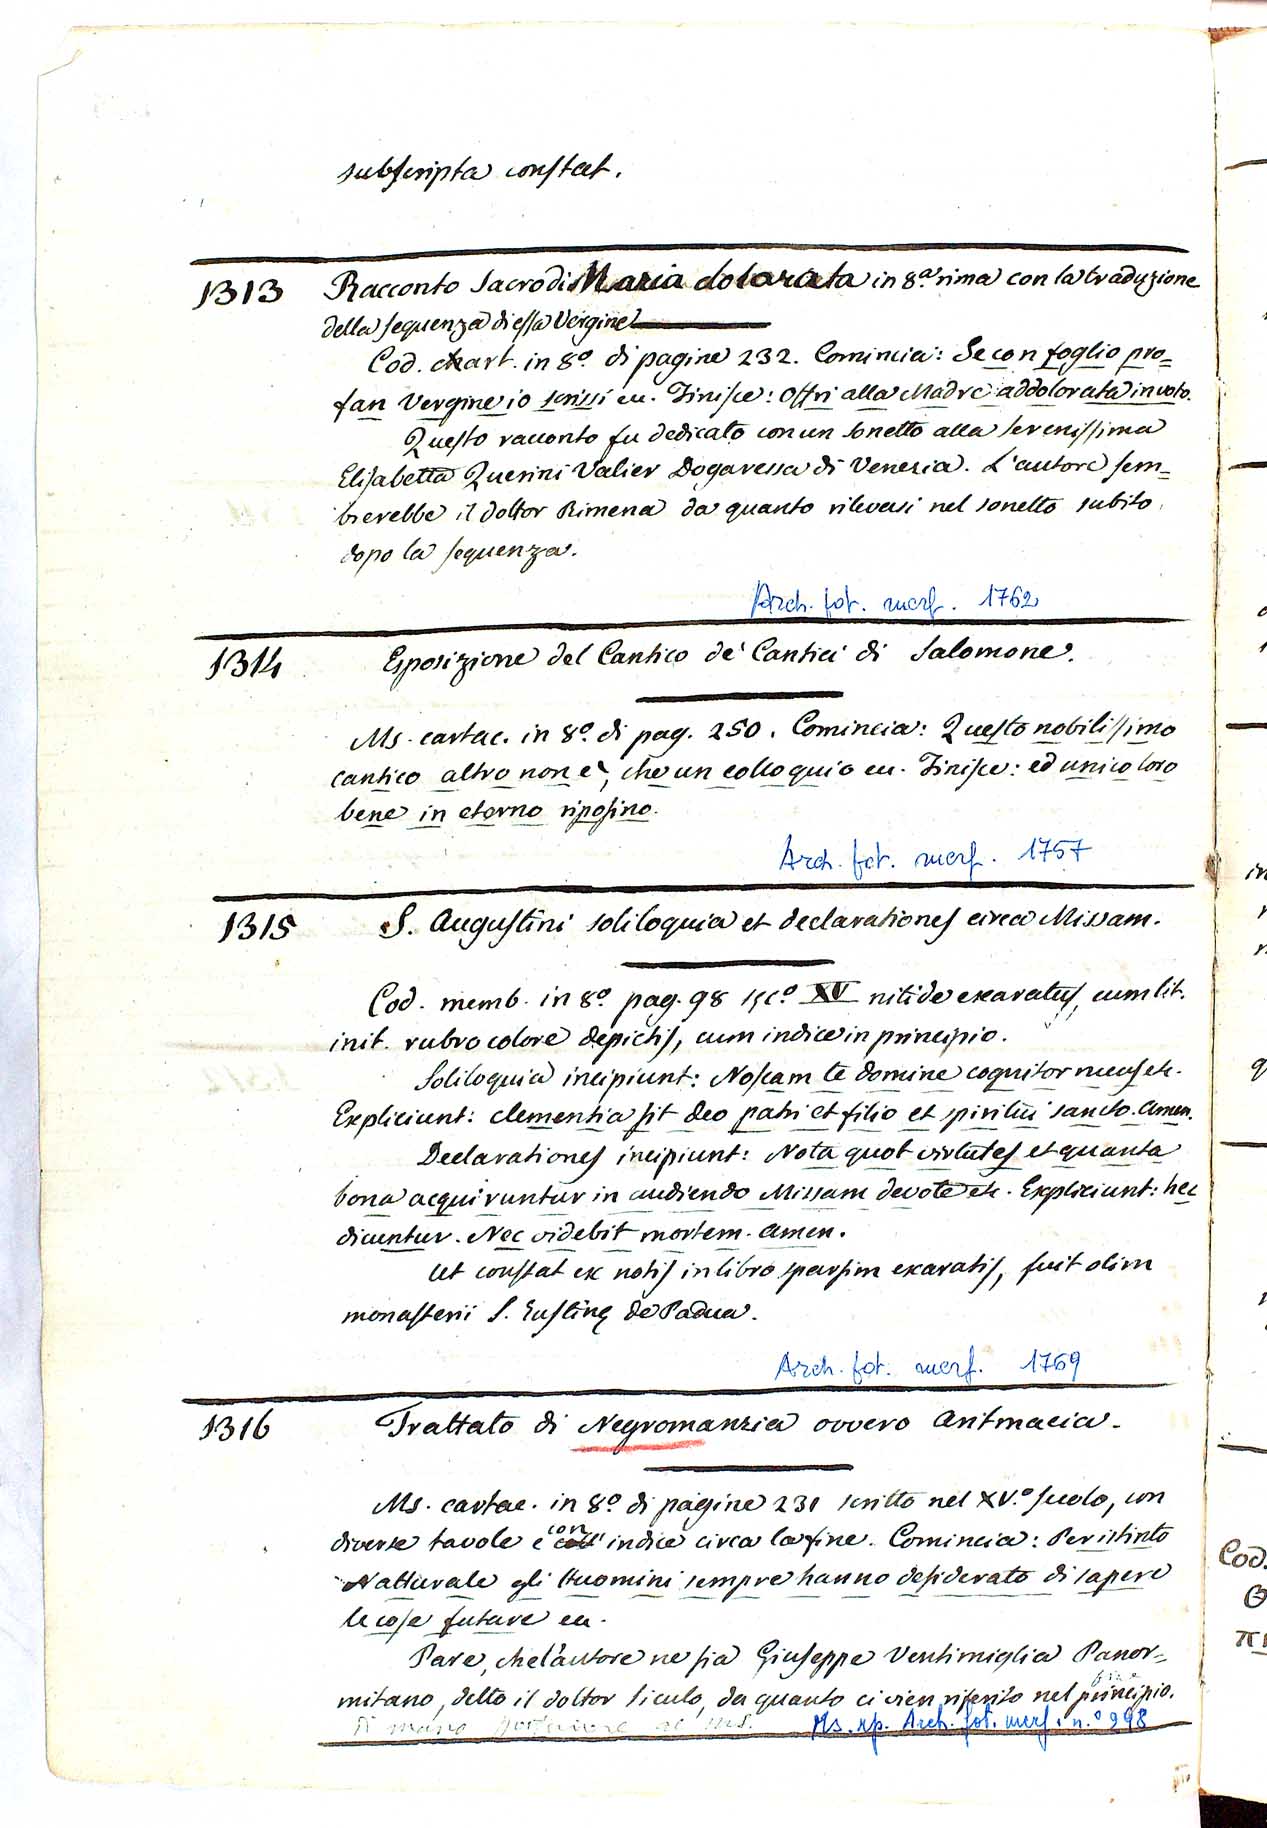 subscripta constat.
1313 Racconto Sacro di Maria dolorata in 8.a rima con la traduzione
della sequenza di essa Vergine
Cod. chart. in 8.o di pagine 232. Comincia: Se con foglio pro=
fan Vergine io scrissi ec. Finisce: Offri alla Madre addolorata in voto.
Questo racconto fu dedicato con un sonetto alla serenissima
Elisabetta Querini Valier Dogaressa di Venezia. L'autore sem=
brerebbe il dottor Rimena da quanto rilevasi nel sonetto subito
dopo la sequenza.
Arch. fot. marf. 1762
1314 Esposizione del Cantico de' Cantici di Salomone.
Ms. cartac. in 8.o di pag. 250. Comincia: Questo nobilissimo
cantico altro non è, che un colloquio ec. Finisce: ed unico loro
bene in eterno riposino.
Arch. fot. marf. 1757
1315 S. Augustini soliloquia et declarationes circa Missam.
Cod. memb. in 8.o pag. 98 sec.o XV nitide exaratus, cum lit.
init. rubro colore depictis, cum indice in principio.
Soliloquia incipiunt: Noscam te domine cognitor meus etc.
Expliciunt: clementia sit deo patri et filio et spiritui sancto. Amen.
Declarationes incipiunt: Nota quot virtutes et quanta
bona acquiruntur in audiendo Missam devote etc. Expliciunt: hec
dicuntur. Nec videbit mortem. Amen.
Ut constat ex notis in libro sparsim exaratis, fuit olim
monasterii S. Iustinę de Padua.
Arch. fot. marf. 1769
1316 Trattato di Negromanzia ovvero Aritmacia.
Ms. cartac. in 8.o di pagine 231 scritto nel XV.o secolo, con
diverse tavole e con indice circa la fine. Comincia: Per istinto
Natturale gli Huomini sempre hanno desiderato di sapere
le cose future ec.
Pare, che l'autore ne sia Giuseppe Ventimiglia Panor=
mitano, detto il dottor siculo, da quanto ci vien riferito nel principio.
di mano posteriore al ms. Ms. rp. Arch. fot. marf. n.o 998